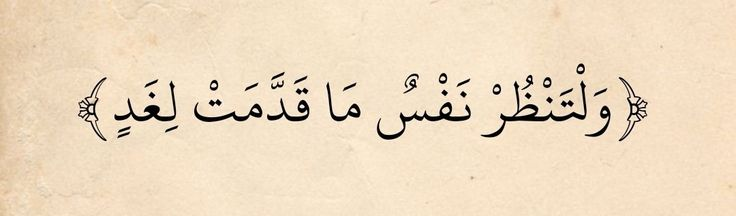 ﴿ وَلْتَنْظُرْ نَفْسٌ مَا قَدَّمَتْ لِغَدٍ ﴾